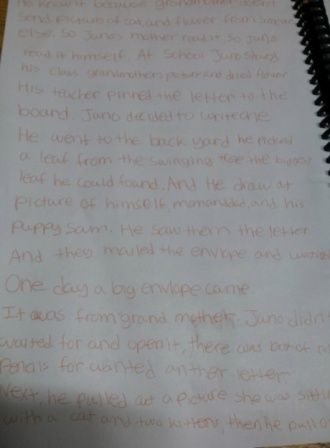 he know it because grandmother
send picture of cat and flower from
else. So Juno's mother read it, so Juno
read it himself. At School Juno shows
his class grandmothers picture and dried flower
His teacher pinned the letter to the
board. Juno decided to write
He went to the back yard he picked
a leaf from the swinging tree the biggest
leaf he could found. And He draw at
picture of himself, mom and dad, and his
puppy Sam. He saw them the letter
And they mailed the envlope and
One day a big envlope came.
It was from grand mother. Juno didn't
waited for and open it, there was
pencils for wanted another letter
Next, he pulled out a picture she was
with a cat and two kittens then he pull